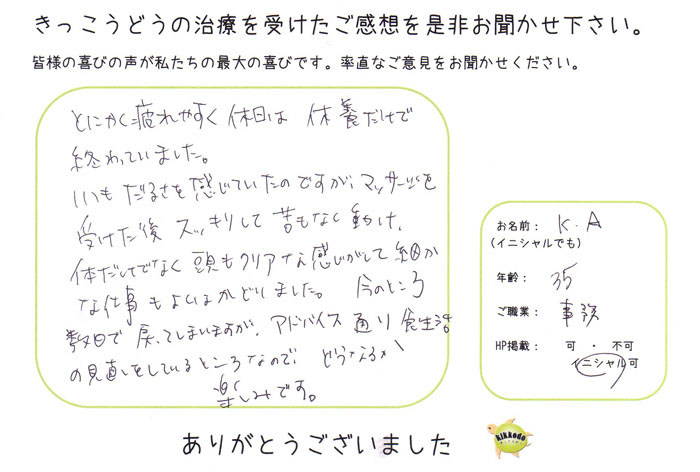 きっこうどうの治療を受けたご感想を是非お聞かせ下さい。
皆様の喜びの声が私たちの最大の喜びです。率直なご意見をお聞かせください。
とにかく疲れやすく 休日は 休養だけで
終わっていました。
いつも だるさを感じていたのですが、マッサージを
受けた後 スッキリして 苦もなく 動け、
体だけでなく 頭もクリアな感じがして 細か
な仕事もよくはかどりました。 今のところ
数日で 戻ってしまいますが、アドバイス通り 食生活
の見直しをしているところなので、どうなるか
楽しみです。
お名前: K.A
(イニシャルでも)
年齢: 35
ご職業: 事務
HP掲載: 可 ・ 不可
イニシャル可
ありがとうございました
kikkodo